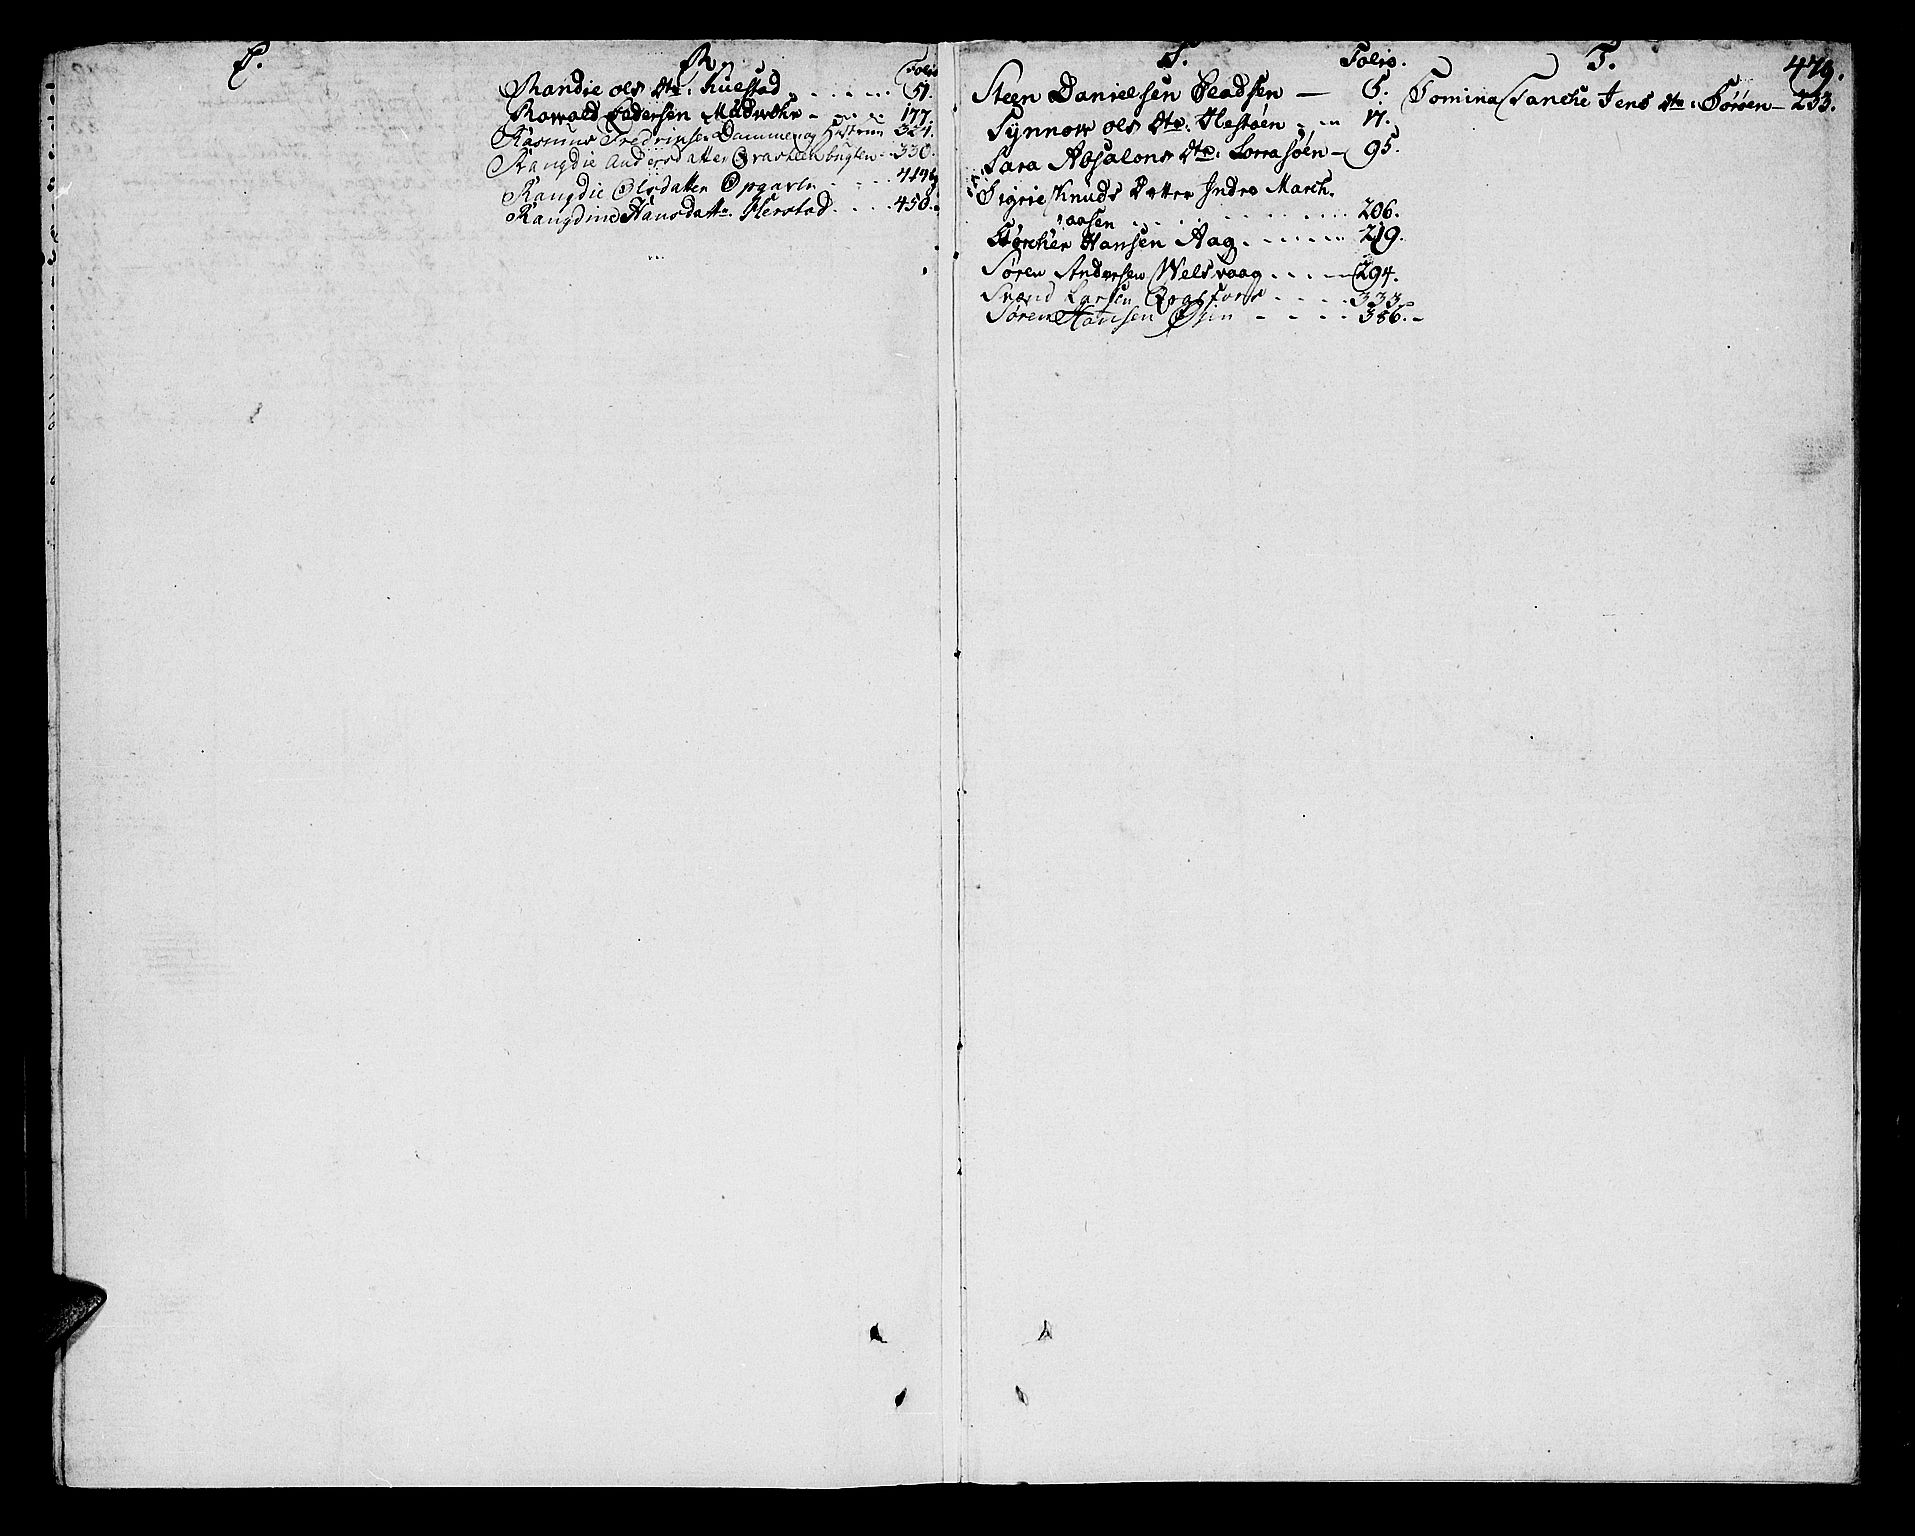 P.
R.
Folio
Randie ols dtr: Kuestad . . . . . 51.
Rowald Pedersen - 177.
Rasmus Fredrichsen Dammen og Hustrue 324.
Rangdie Andersdatter - 330.
Rangdie Olsdatter Opgaven - - - -
Rangdine Hansdattr. Herstad . . . . 450.
S.
Folio.
Steen Danielsen Pladsen — 5.
Synnove ols dtr: Hestøen - - - 17.
Sara Absalons dtr: Lorrasøen — 95.
Sigrie Knuds Datter Indre March-
aasen . . . . . . . . 206.
Størcher Hansen Aag . . . . . . 219.
Søren Andersen Welsvaag . . . . 294.
Svend Larsen . . . . 333.
Søren Hansen Øien - - - - 386.-
T.
479.
Tomina Tanche Jens dtr: Sørøen — 233.